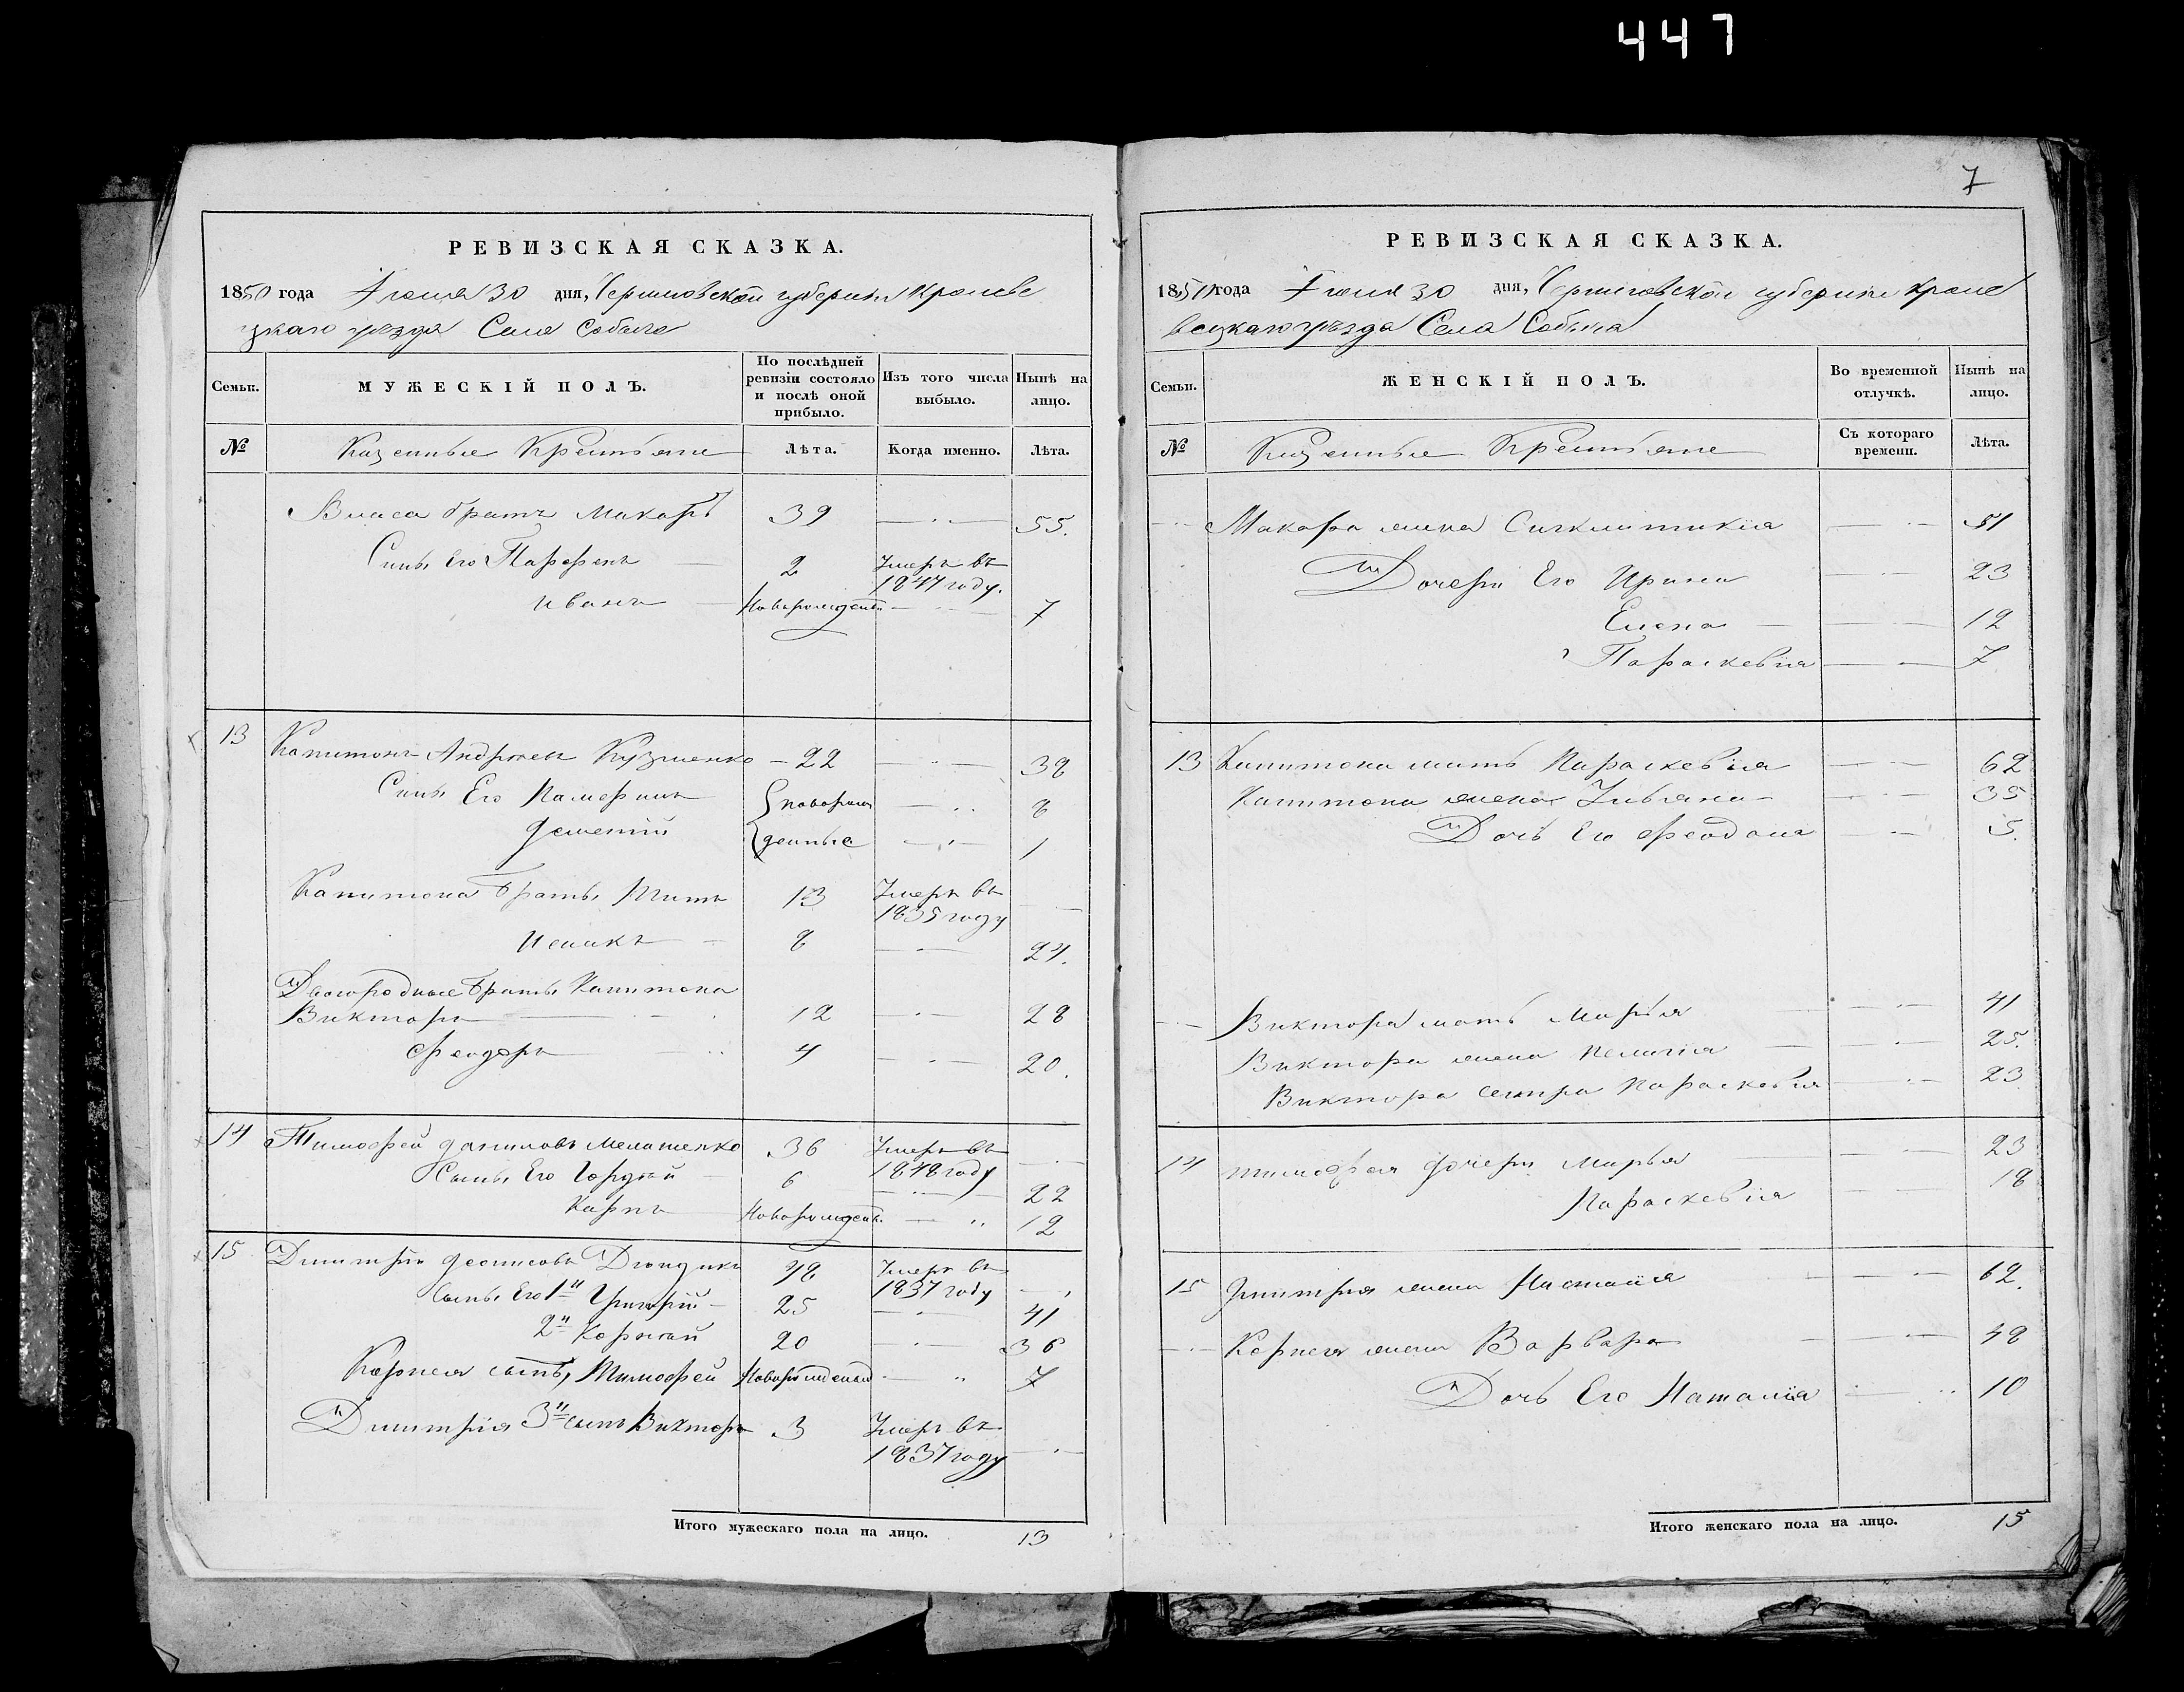 447
РЕВИЗСКАЯ СКАЗКА.
1850 года Іюня 30 дня, Черниговской губерніи Кролеве
цкаго уѣзда Села Собыча
Семьи.
МУЖЕСКІЙ ПОЛЪ.
По послѣдней ревизіи состояло и послѣ оной прибыло.
Изъ того числа выбыло.
Нынѣ на лицо.
№
Казенные Крестьяне
Лѣта.
Когда именно.
Лѣта.
Власа братъ Макаръ 39 55.
Сыны Его Парфенъ 2 Умеръ въ 1847 году.
Иванъ Новорожденъ 7
13 Капитонъ Андреевъ Кузменко 22 38
Сыны Его 8
Дементій 1
новорож
денные
Капитона Братья Титъ 13 Умеръ въ 1835 году
Исаакъ 8 24.
Двоюродные Братья Капитона
Викторъ 12 28
Феодоръ 4 20.
14 Тимофей Даниловъ 36 Умеръ въ 1848 году
Сыны Его Гордѣй 6 22
Карпъ Новорожден. 12
15 Димитрій Денисовъ 48 Умеръ въ 1837 году
Сыны Его 1й Григорій 25 41
2й Корнѣй 20 36
Корнея сынъ, Тимофей Новорожденный 7
Димитрія 3й сынъ Викторъ 3 Умеръ въ 1837 году
Итого мужескаго пола на лицо. 13
7
РЕВИЗСКАЯ СКАЗКА.
1850 года Іюня 30 дня, Черниговской губерніи Кроле
вецкаго уѣзда Села Собыча
Семьи.
ЖЕНСКІЙ ПОЛЪ.
Во временной отлучкѣ.
Нынѣ на лицо.
№
Казенные Крестьяне
Съ котораго времени.
Лѣта.
Макара жена Сигклитикія 51
Дочери Его Ирина 23
Елена 12
Параскевія 7
13 Капитона мать Параскевія 62
Капитона жена Ульяна 35
Дочь Его Феодосия 5.
Виктора мать Марья 41
Виктора жена Пелагія 25.
Виктора сестра Параскевія 23
14 Тимофея Дочери Марья 23
Параскевія 18
15 Димитрия жена Настасія 62.
Корнея жена Варвара 48
Дочь Его Наталія 10
Итого женскаго пола на лицо. 15